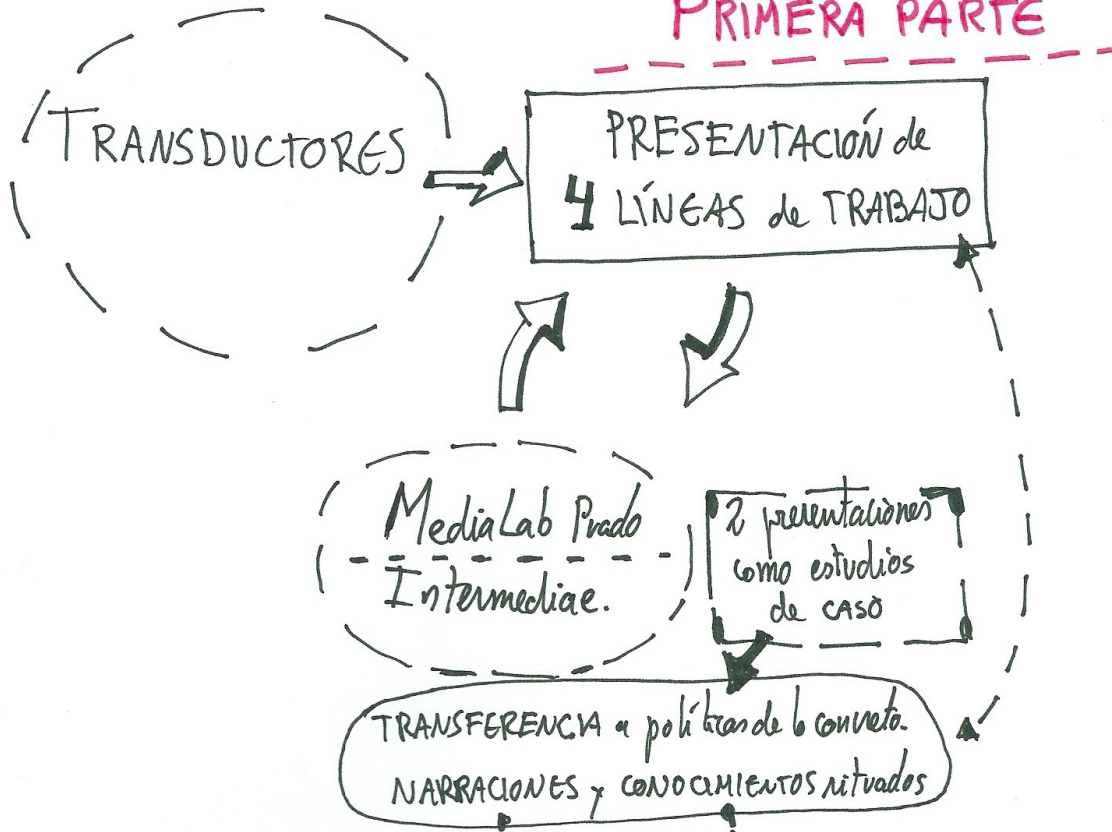 PRIMERA PARTE
TRANSDUCTORES
PRESENTACIÓN de
4 LÍNEAS de TRABAJO
MediaLab Prado
Intermediae.
2 presentaciones
como estudios
de CASO
TRANSFERENCIA a políticas de lo concreto.
NARRACIONES y CONOCIMIENTOS situados